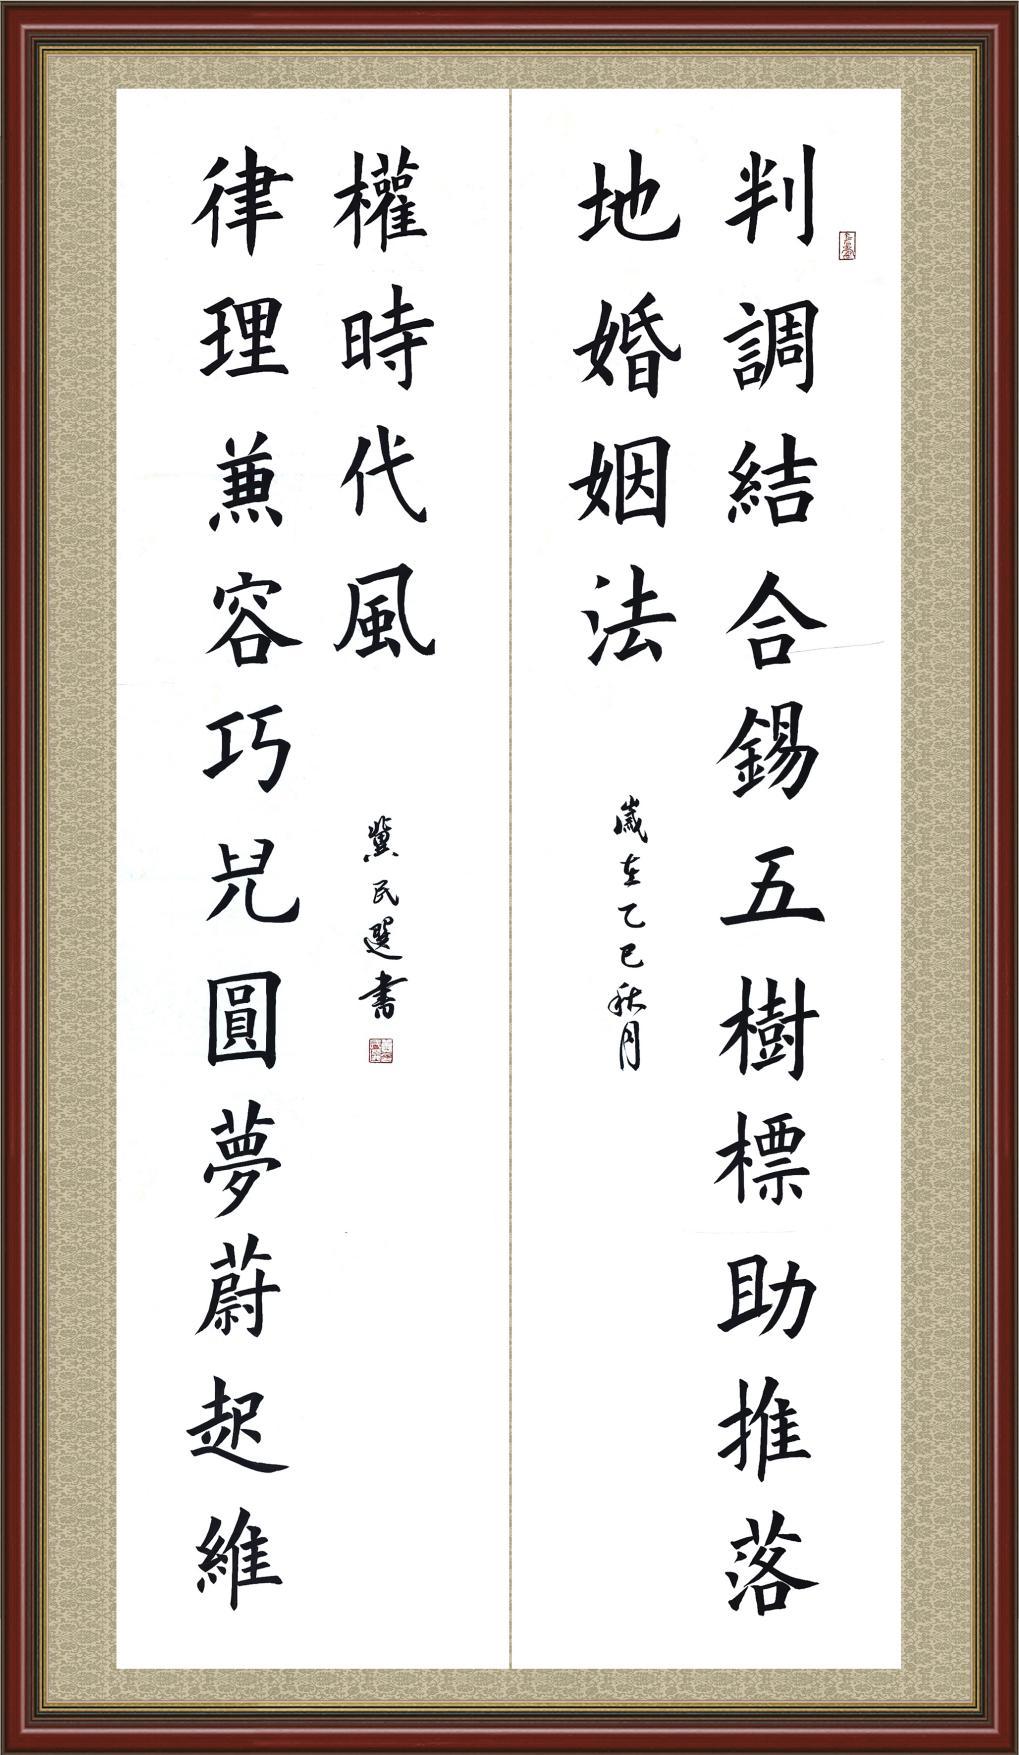 判調結合錫五樹標助推落
地婚姻法
歲在乙巳秋月
律理兼容巧兒圓夢蔚起維
權時代風
冀民選書